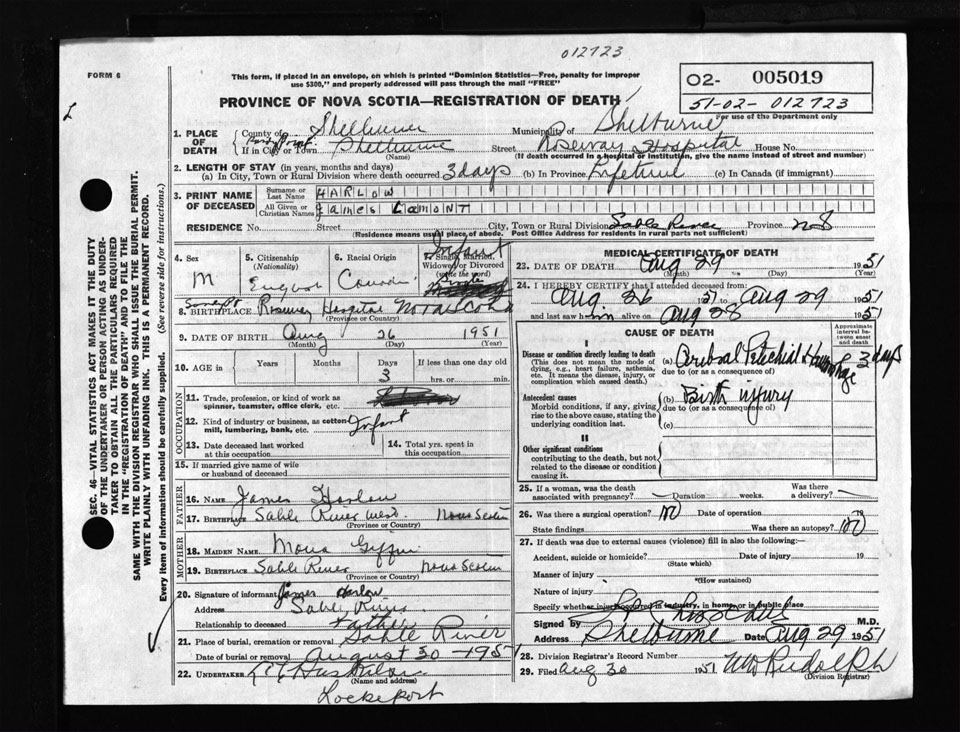 012723
FORM 6
This form, if placed in an envelope, on which is printed "Dominion Statistics—Free, penalty for improper
use $300," and properly addressed will pass through the mail "FREE"
PROVINCE OF NOVA SCOTIA—REGISTRATION OF DEATH
02- 005019
51-02-012723
For use of the Department only
1. PLACE OF DEATH
County of Shelburne Municipality of Shelburne
If in City or Town Shelburne Street Roseway Hospital House No.
(Name) (If death occurred in a hospital or institution, give the name instead of street and number)
2. LENGTH OF STAY (in years, months and days)
(a) In City, Town or Rural Division where death occurred 3 days (b) In Province Lifetime (c) In Canada (if immigrant)
3. PRINT NAME OF DECEASED
Surname or Last Name HARLOW
All Given or Christian Names James Lamont
RESIDENCE No. Street City, Town or Rural Division Sable River Province N.S
(Residence means usual place of abode. Post Office Address for residents in rural parts not sufficient)
4. Sex M
5. Citizenship (Nationality)
6. Racial Origin
Single, Married, Widowed or Divorced (write the word) Infant
8. BIRTHPLACE Roseway Hospital Nova Scotia
(Province or Country)
9. DATE OF BIRTH Aug 26 1951
(Month) (Day) (Year)
10. AGE in Years Months Days 3 If less than one day old
hrs. or min.
OCCUPATION
11. Trade, profession, or kind of work as
spinner, teamster, office clerk, etc.
12. Kind of industry or business, as cotton-
mill, lumbering, bank, etc. Infant
13. Date deceased last worked
at this occupation
14. Total yrs. spent in
this occupation
15. If married give name of wife
or husband of deceased
FATHER
16. NAME James Harlow
17. BIRTHPLACE Sable River West Nova Scotia
(Province or Country)
MOTHER
18. MAIDEN NAME Giffin
19. BIRTHPLACE Sable River Nova Scotia
(Province or Country)
20. Signature of informant James Harlow
Address Sable River
Relationship to deceased Father
21. Place of burial, cremation or removal Sable River
Date of burial or removal August 30 - 1951
22. UNDERTAKER
Lockeport
MEDICAL CERTIFICATE OF DEATH
23. DATE OF DEATH Aug 29 1951
(Month) (Day) (Year)
24. I HEREBY CERTIFY that I attended deceased from:
Aug. 26 1951 to Aug 29 1951
and last saw him alive on Aug 28 1951
CAUSE OF DEATH
Approximate interval between onset and death
I
Disease or condition directly leading to death
(This does not mean the mode of
dying, e.g., heart failure, asthenia,
etc. It means the disease, injury, or
complication which caused death.)
(a) Cerebral Petechial Hemorrhage 3 days
due to (or as a consequence of)
Antecedent causes
Morbid conditions, if any, giving
rise to the above cause, stating the
underlying condition last.
(b) Birth injury
due to (or as a consequence of)
(c)
II
Other significant conditions
contributing to the death, but not
related to the disease or condition
causing it.
25. If a woman, was the death
associated with pregnancy? Duration weeks. Was there
a delivery?
26. Was there a surgical operation? No Date of operation 19
State findings Was there an autopsy? No
27. If death was due to external causes (violence) fill in also the following:—
Accident, suicide or homicide? Date of injury 19
(State which)
Manner of injury
(How sustained)
Nature of injury
Specify whether injury occurred in industry, in home, or in public place
Signed by M.D.
Address Shelburne Date Aug 29 1951
28. Division Registrar's Record Number
29. Filed Aug 30 1951 Rudolph
(Division Registrar)
SEC. 46—VITAL STATISTICS ACT MAKES IT THE DUTY
OF THE UNDERTAKER OR PERSON ACTING AS UNDER-
TAKER TO OBTAIN ALL THE PARTICULARS REQUIRED
IN THE "REGISTRATION OF DEATH" AND TO FILE THE
SAME WITH THE DIVISION REGISTRAR WHO SHALL ISSUE THE BURIAL PERMIT.
WRITE PLAINLY WITH UNFADING INK. THIS IS A PERMANENT RECORD.
Every item of information should be carefully supplied. (See reverse side for instructions.)